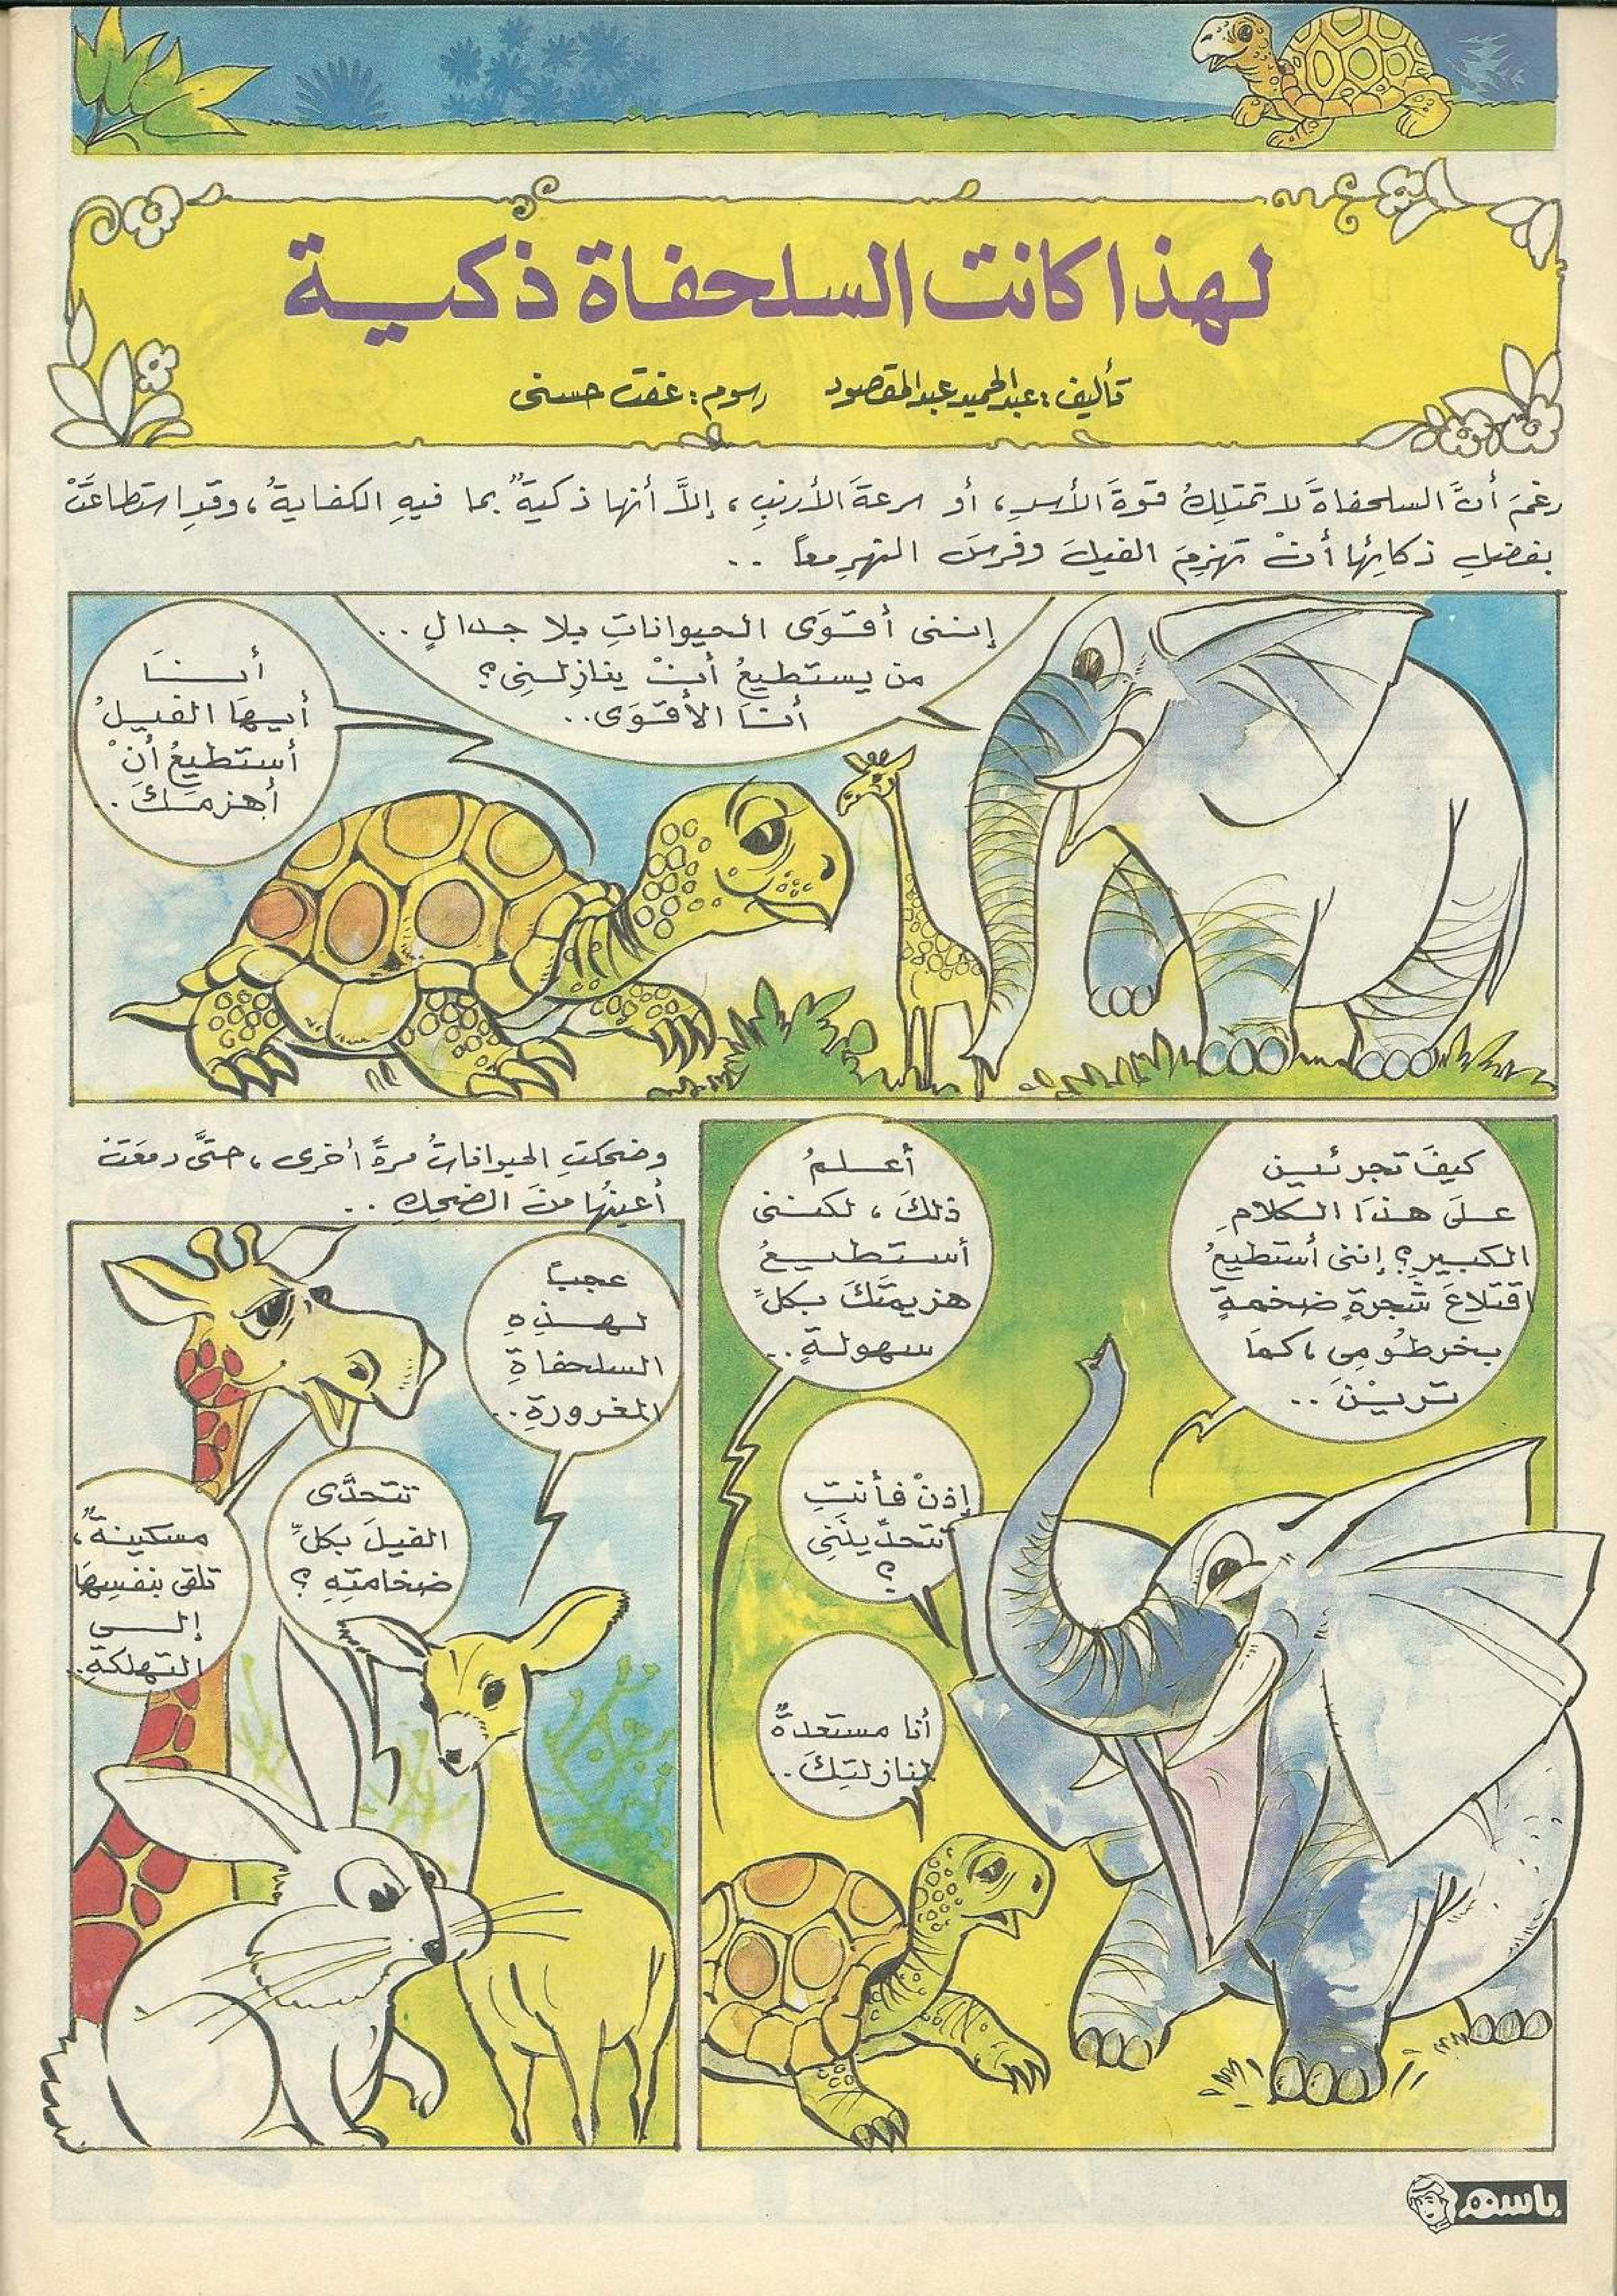 لهذا كانت السلحفاة ذكية
تأليف: عبد الحميد عبد المقصود رسوم: عفت حسنى
رغمَ أنَّ السلحفاةَ لا تمتلِكُ قوةَ الأسدِ، أو سرعةَ الأرنبِ، إلاَّ أنها ذكيةٌ بما فيهِ الكفايةُ، وقدِ استطاعَتْ
بفضلِ ذكائِها أنْ تهزِمَ الفيلَ وفرسَ النهرِ معاً ..
إننى أقوَى الحيواناتِ بلا جدالٍ ..
من يستطيعُ أنْ ينازِلَنِى؟
أنَا الأقوَى..
أنَا
أيهَا الفيلُ
أستطيعُ أنْ
أهزمَكَ..
كيفَ تجرئين
علَى هذَا الكلامِ
الكبيرِ؟ إننى أستطيعُ
اقتلاعَ شجرةٍ ضخمةٍ
بخرطُومِى، كمَا
تريْنَ ..
أعلمُ
ذلكَ، لكننى
أستطيعُ
هزيمتَكَ بكلِّ
سهولةٍ ..
إذنْ فأنتِ
تتحدِّينَنِى
؟
أنا مستعدةٌ
لمنازلتِكَ..
وضحكتِ الحيواناتُ مرةً أخرى، حتَّى دمعَتْ
أعينُها منَ الضحِكِ ..
عجباً
لهذِهِ
السلحفاةِ
المغرورةِ..
تتحدَّى
الفيلَ بكلِّ
ضخامتِهِ ؟
مسكينةٌ،
تلقى بنفسِهَا
إلى
التهلكةِ..
باسم